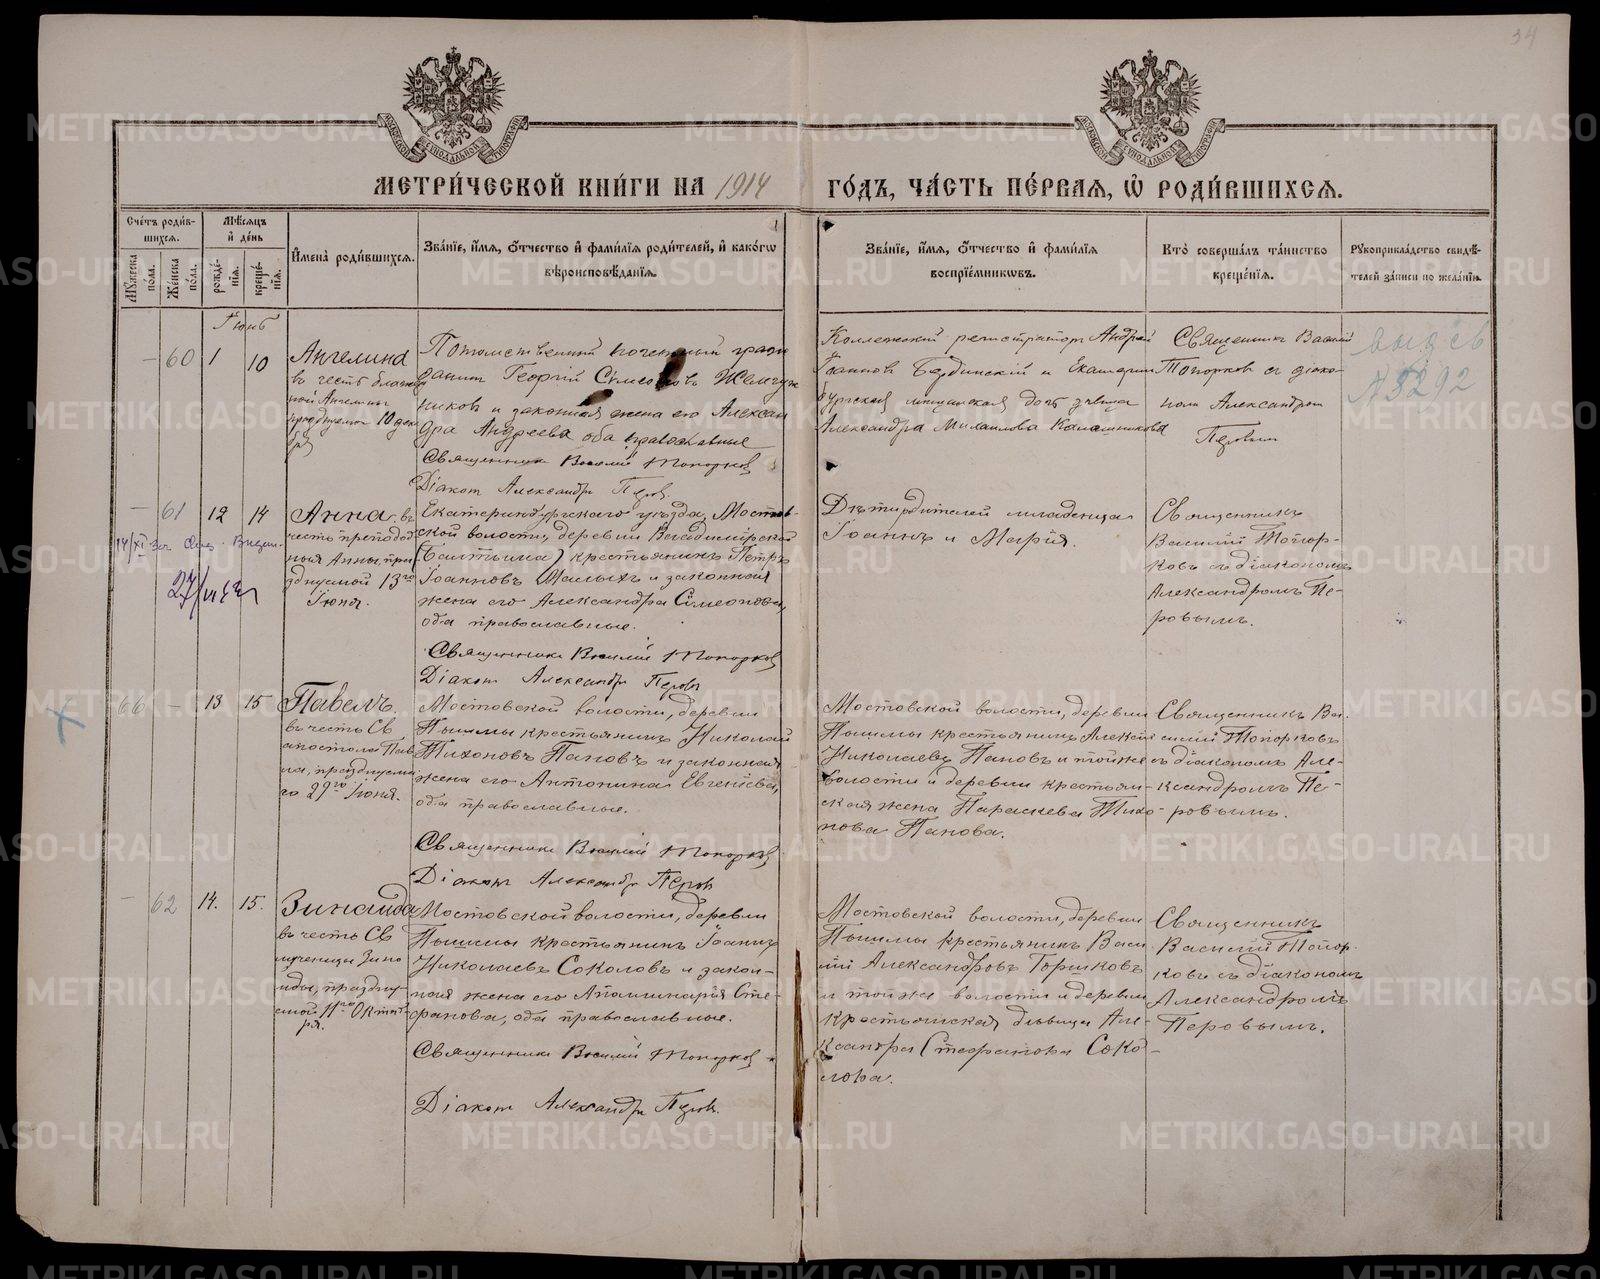 34
МОСКОВСКОЙ СѴНОДАЛЬНОЙ ТИПОГРАФІИ
МОСКОВСКОЙ СѴНОДАЛЬНОЙ ТИПОГРАФІИ
МЕТРИ́ЧЕСКОЙ КНИ́ГИ НА 1914 ГО́ДЪ, ЧА́СТЬ ПЕ́РВАЯ, Ѡ҆ РОДИ́ВШИХСЯ.
Сче́тъ роди́в-
шихся.
Мꙋ́жеска по́ла.
Же́нска по́ла.
Мѣ́сяцъ
и҆ де́нь
рожде́-
нїя.
креще́-
нїя.
И҆мена̀ роди́вшихся.
Зва́нїе, и҆́мя, ѻ҆́тчество и҆ фами́лїя роди́телей, и҆ како́гѡ
вѣроисповѣ́данїя.
Зва́нїе, и҆́мя, ѻ҆́тчество и҆ фами́лїя
воспрїе́мникѡвъ.
Кто̀ соверша́лъ та́инство
креще́нїя.
Рꙋкоприкла́дство свидѣ́-
телей за́писи по жела́нїю.
Іюнь
— 60 1 10
Ангелина
въ честь
ной Ангелины
празднуемой 10 дек
Потомственный почетный граж
данин Георгій Симеонов Жемчуж
ников и законная жена его Алексан
дра Андреева оба православные
Священникъ Василій Топорков
Діакон Александръ Перов.
Коллежский регистратор Андрей
Іоаннов Бердинский и Екатерин
бургская мещанская дочь девица
Александра Михаилова Калашникова
Священник Василій
Топорков с диако-
ном Александром
Перовым
№ 5292
— 61 12 14
Анна, въ
честь преподоб
ныя Анны, пра
зднуемой 13го
Іюня.
27/
Екатеринбургскаго уѣзда, Мостов-
ской волости, деревни Владимірской
крестьянинъ Петръ
Іоанновъ Малыхъ и законная
жена его Александра Симеонова,
оба православные.
Священникъ Василій Топорков
Діакон Александръ Перовъ
Дѣти родителей младенца
Іоаннъ и Марія.
Священникъ
Василій Топор-
ковъ съ діакономъ
Александромъ Пе-
ровымъ.
66 — 13 15
Павелъ.
въ честь Св.
апостола Пав
ла, празднуема
го 29го Іюня.
Мостовской волости, деревни
Пышмы крестьянинъ Николай
Тихоновъ Пановъ и законная
жена его Антонина Евгеніева,
оба православные.
Священникъ Василій Топорков
Діаконъ Александръ Перов
Мостовской волости, деревни
Пышмы крестьянинъ Алексѣй
Николаевъ Пановъ и той же
волости и деревни крестьян-
ская жена Параскева Тихо-
нова Панова.
Священникъ Ва-
силій Топорковъ
съ діакономъ Але-
ксандромъ Пе-
ровымъ.
— 62 14. 15.
Зинаида
въ честь Св
мученицы Зина
иды, праздну-
емой 11го Октяб
ря.
Мостовской волости, деревни
Пышмы крестьянинъ Іоаннъ
Николаевъ Соколовъ и закон-
ная жена его Аполлинарія Сте-
фанова, оба православные.
Священникъ Василій Топорков
Діакон Александръ Перов.
Мостовской волости, деревни
Пышмы крестьянинъ Васи
лій Александровъ Горшковъ
и той же волости и деревни
крестьянская дѣвица Але-
ксандра Стефанова Соко-
лова.
Священникъ
Василій Топор-
ковъ съ діакономъ
Александромъ
Перовымъ.
METRIKI.GASO-URAL.RU